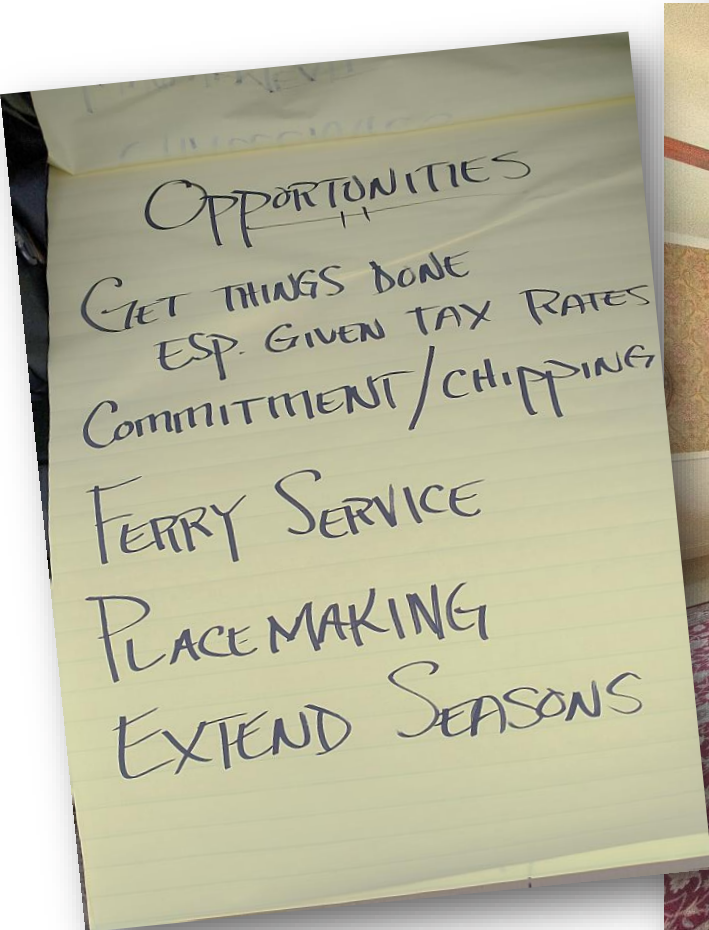 OPPORTUNITIES
GET THINGS DONE
ESP. GIVEN TAX RATES
COMMITMENT/CHIPPING
FERRY SERVICE
PLACEMAKING
EXTEND SEASONS